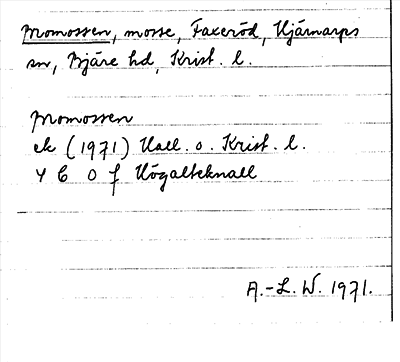 Promossen, mosse, Faxeröd, Hjärnarps
sn, Bjäre hd, Krist. l.
Promossen
ek (1971) Hall. o. Krist. l.
4 C o f Högalteknall
A.-L. W. 1971.